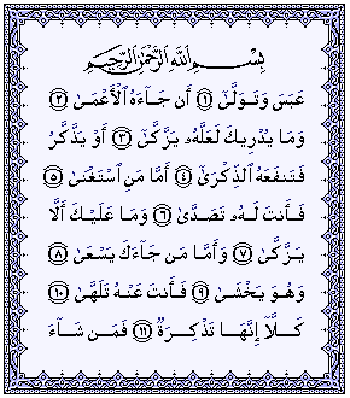 بِسْمِ ٱللَّهِ ٱلرَّحْمَٰنِ ٱلرَّحِيمِ
عَبَسَ وَتَوَلَّىٰٓ ١ أَن جَآءَهُ ٱلْأَعْمَىٰ ٢
وَمَا يُدْرِيكَ لَعَلَّهُۥ يَزَّكَّىٰٓ ٣ أَوْ يَذَّكَّرُ
فَتَنفَعَهُ ٱلذِّكْرَىٰٓ ٤ أَمَّا مَنِ ٱسْتَغْنَىٰ ٥
فَأَنتَ لَهُۥ تَصَدَّىٰ ٦ وَمَا عَلَيْكَ أَلَّا
يَزَّكَّىٰ ٧ وَأَمَّا مَن جَآءَكَ يَسْعَىٰ ٨
وَهُوَ يَخْشَىٰ ٩ فَأَنتَ عَنْهُ تَلَهَّىٰ ١٠
كَلَّآ إِنَّهَا تَذْكِرَةٌ ١١ فَمَن شَآءَ